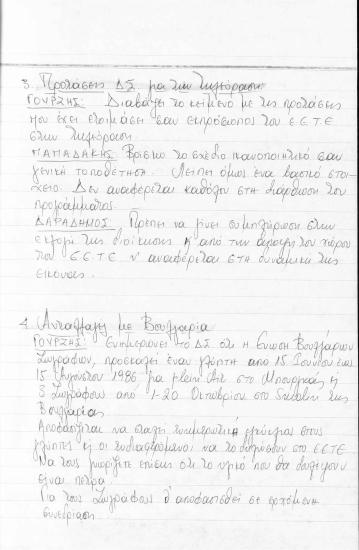 3. Προτάσεις ΔΣ για την τηλεόραση
ΓΟΥΡΖΗΣ: Διαβάζει το κείμενο με τις προτάσεις
που έχει ετοιμάσει σαν εκπρόσωπος του ΕΕΤΕ
στην τηλεόραση.
ΠΑΠΑΔΑΚΗΣ: Βρίσκω το σχέδιο ικανοποιητικό σαν
γενική τοποθέτηση. Λείπει όμως ένα βασικό στοι-
χείο. Δεν αναφέρεται καθόλου στη διάρθωση του
προγράμματος.
ΔΑΡΑΔΗΜΟΣ: Πρέπει να γίνει συμπλήρωση στην
εκλογή της διοίκησης κ' από την του χώρου
του ΕΕΤΕ ν' αναφέρεται στη δυναμικα της
εικόνας.
4. Ανταλλαγη με Βουλγαρία
ΓΟΥΡΖΗΣ: Ενημερώνει το ΔΣ ότι η Ενωση Βουλγάρων
Ζωγράφων, προσκαλεί έναν γλύπτη από 15 Ιουνίου εως
15 Αυγούστου 1986 για plein air στο Μπουργκάς ή
3 Ζωγράφους από 1-20 Οκτωβρίου στο της
Βουλγαρίας
Αποφασίζεται να σταλεί ενημερωτικό στους
γλύπτες κ' οι ενδιαφερόμενοι να το δηλώσουν στο ΕΕΤΕ
Να τους γνωρίζετε επίσης ότι το υλικό που θα δουλέψουν
είναι πέτρα.
Για τους Ζωγράφους θ' αποφασισθεί σε ερχόμενη
συνεδρίαση.